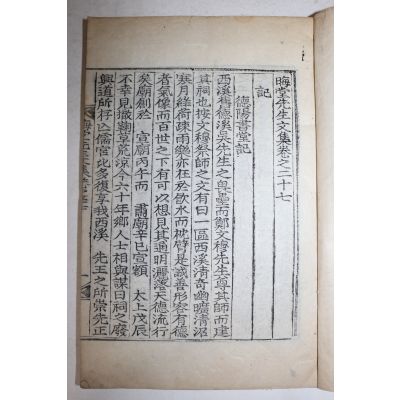 晦堂先生文集卷之二十七
記
德陽書堂記
西溪舊德溪吳先生之畏壘而鄭文穆先生尊其師而建
其祠也按文穆祭師之文有曰一區西溪清奇幽曠清沼
寒月綠荷疎雨樂亦在於飲水而枕臂是誠善形容有德
者氣像而百世之下有可以想見其通明灑落天德流行
矣廟創於 宣廟丙午而 肅廟辛巳宣額 太上戊辰
不幸見撤鞠草荒涼今六十年鄉人士相與謀曰祠之廢
興道所存 儒宮 多復享我西溪 先王之所崇先正